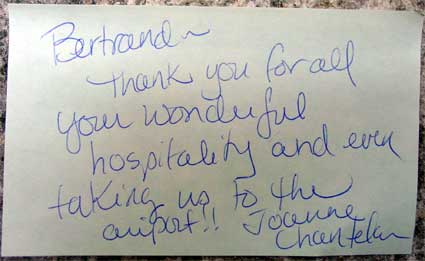 Bertrand~
Thank you for all
your wonderful
hospitality and even
taking us to the
airport!! Joanne
Chantelan